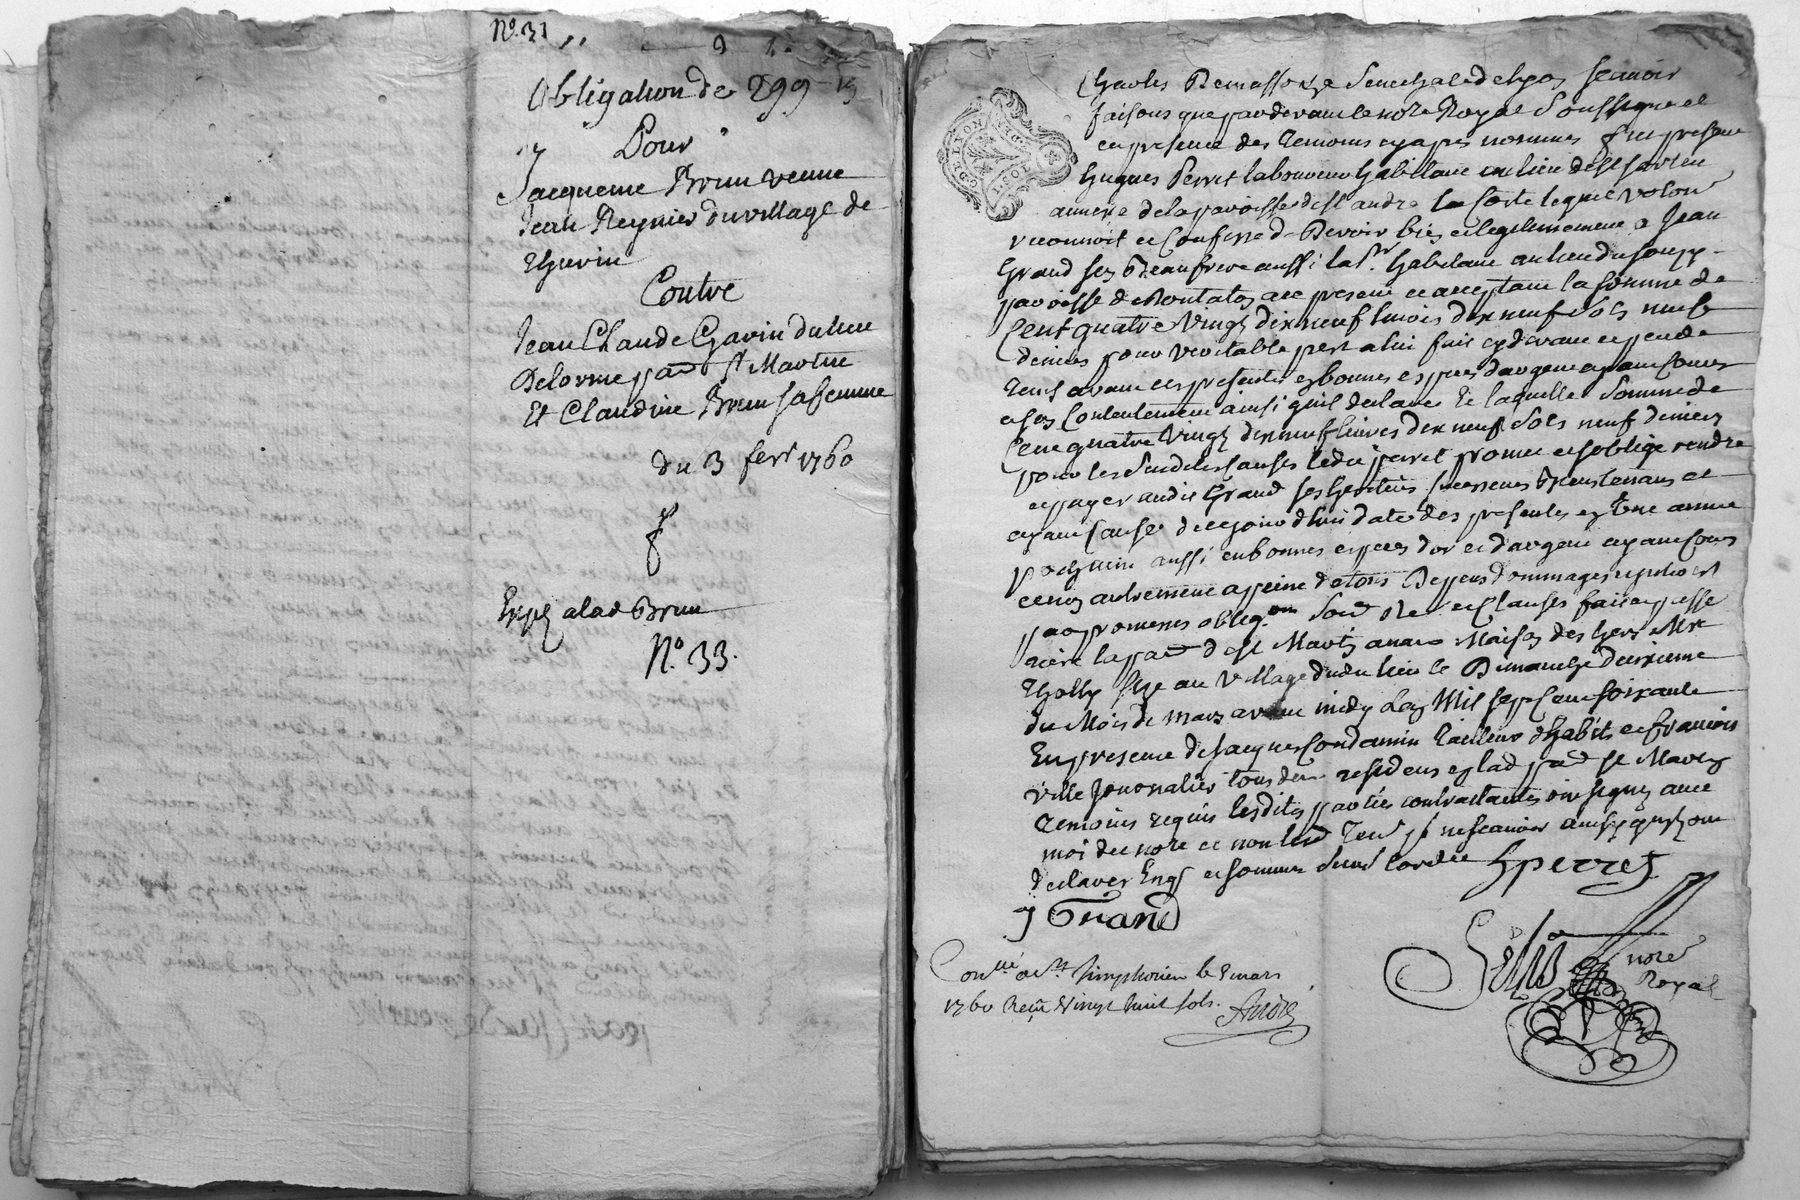 N.º 31
Obligation de 299 19
Pour
Jacqueme Brun veuve
Jean Reynier du village de
Thurin
Contre
Jean Claude Gavin du lieu
Delorme par St Martin
Et Claudine Brun sa femme
du 3 fevr 1760
Expé a lad Brun
N.º 33.
GD. LYON
Charles Demasso Senechal de Lyon scavoir
faisons que pardevant le nore Royal soussigne et
en presence des temoins cyapres nommes fut present
hugues Perret laboureur habitant au lieu de
annexe de la paroisse de St andre la Coste lequel
reconnoit et Confesse Devoir bien et legitimement a Jean
Grand son Beaufrere aussi labr habitant au lieu du
paroisse de Rontalon present et acceptant la somme de
Cent quatre Vingt dix neuf livres dix neuf sols neuf
deniers pour veritable pret a lui fait cydevant et
avant ces presentes en bonnes especes dargent ayant Cours
a son Contentement ainsi quil declare Et laquelle Somme de
Cent quatre Vingt dix neuf livres dix neuf sols neuf deniers
pour les Susdites Causes ledit perret promet et soblige rendre
et payer audit Grand ses heritiers successeurs et
ayant Cause de ce jourdhui date des presentes en Une annee
prochaine aussi en bonnes especes dor et dargent ayant Cours
et non autrement a peine de tous Depens dommages
par promesses obligon Soud et Clauses fait et passe
riere la par de St Martin Maison des hers Mre
Tholly size au Village dudit lieu le Dimanche deuxieme
du Mois de mars avant midy Lan Mil sept Cent soixante
En presence de Jacques Condamin Tailleur dhabits et francois
ville Journalier tous deux residens en lad par St Martin
temoins requis lesdites parties contractantes ont signe avec
moi dit nore et non lesd Tem pr ne scavoir
declares Enqs et sommes suivt lord
hperret
j Grand
nore
Royal
Con.llé a St Simphorien le 8 mars
1760 Reçu Vingt huit sols. André